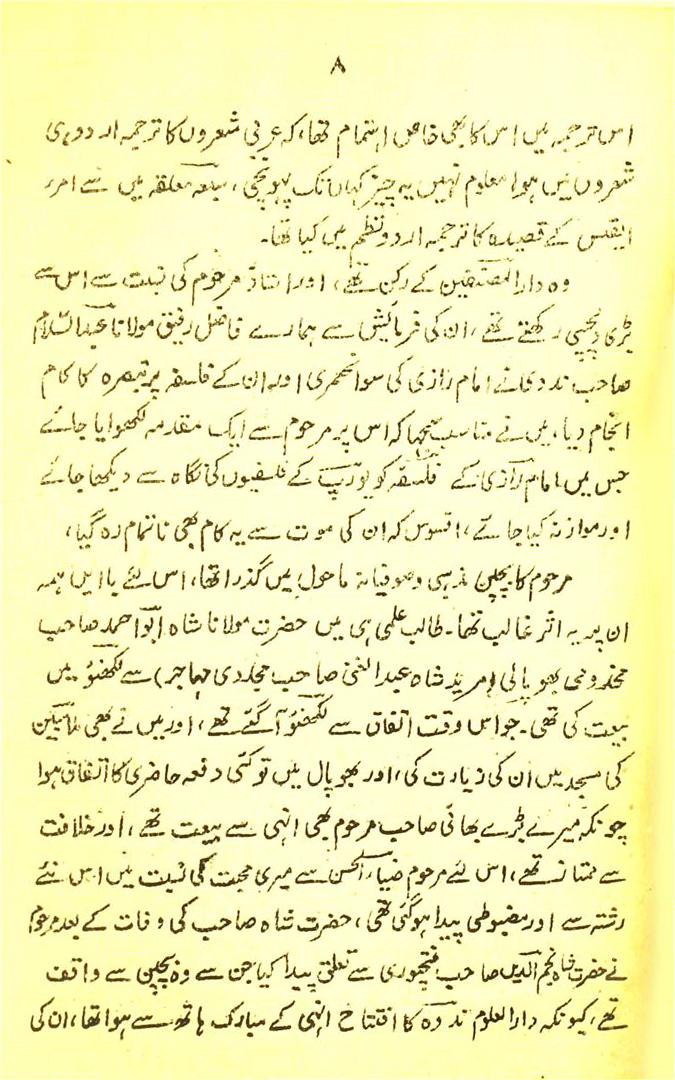 ۸
اس ترجمہ میں اس کا بھی خاص اہتمام تھا، کہ عربی شعروں کا ترجمہ اردو ہی
شعروں میں ہوا معلوم نہیں یہ چیز کہاں تک پہونچی، سبعہ معلقہ میں سے امرء
القیس کے قصیدہ کا ترجمہ اردو نظم میں کیا تھا۔
وہ دار المصنفین کے رکن تھے، اور استاذ مرحوم کی نسبت سے اس سے
بڑی دلچسپی رکھتے تھے، ان کی فرمائش سے ہمارے فاضل رفیق مولانا عبدالسلام
صاحب ندوی نے امام رازی کی سوانحعمری اور ان کے فلسفہ پر تبصرہ کا کام
انجام دیا، میں نے مناسب سمجھا کہ اس پر مرحوم سے ایک مقدمہ لکھوایا جائے
جس میں امام رازی کے فلسفہ کو یورپ کے فلسفیوں کی نگاہ سے دیکھا جائے
اور موازنہ کیا جائے، افسوس کہ ان کی موت سے یہ کام بھی ناتمام رہ گیا،
مرحوم کا بچپن مذہبی و صوفیانہ ماحول میں گذرا تھا، اس لئے با ایں ہمہ
ان پر یہ اثر غالب تھا۔ طالب علمی ہی میں حضرت مولانا شاہ ابو احمد صاحب
مجددی بھوپالی (مرید شاہ عبد الغنی صاحب مجددی مہاجر) سے لکھنؤ میں
بیعت کی تھی۔ جو اس وقت اتفاق سے لکھنؤ آ گئے تھے، اور میں نے بھی
کی مسجد میں ان کی زیارت کی، اور بھوپال میں تو کئی دفعہ حاضری کا اتفاق ہوا
چونکہ میرے بڑے بھائی صاحب مرحوم بھی انہی سے بیعت تھے، اور خلافت
سے ممتاز تھے، اس لئے مرحوم ضیاء الحسن سے میری محبت کی نسبت میں اس نئے
رشتہ سے اور مضبوطی پیدا ہو گئی تھی، حضرت شاہ صاحب کی وفات کے بعد مرحوم
نے حضرت شاہ نجم الدین صاحب فتحپوری سے تعلق پیدا کیا جن سے وہ بچپن سے واقف
تھے، کیونکہ دارالعلوم ندوہ کا افتتاح انہی کے مبارک ہاتھ سے ہوا تھا، ان کی